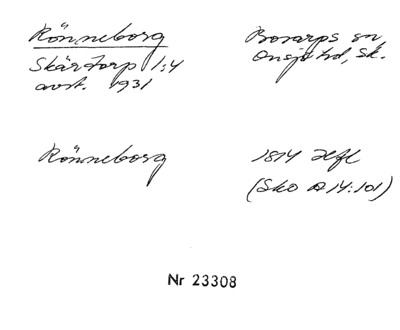 Rönneborg
Skärtorp 1:4
avst. 1931
Bosarps sn,
Onsjö hd, Sk.
Rönneborg
1814 Hfl
(Sko A 14:101)
Nr 23308